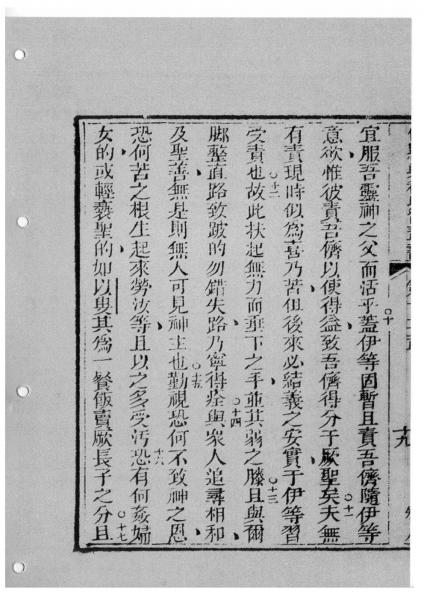 十九
宜服吾靈神之父而活乎○十蓋伊等固暫且責吾儕隨伊等
意欲惟彼責吾儕以使得益致吾儕得分于厥聖矣○十一夫無
有責現時似為喜乃苦但後來必結義之安實于伊等習
受責也○十二故此扶起無力而垂下之手並其弱之膝○十三且與爾
脚整直路致跛的勿錯失路乃寧得痊○十四與衆人追尋相和
及聖善無是則無人可見神主也○十五勤視恐何不致神之恩
恐何苦之根生起來勞汝等且以之多受汚十六恐有何姦婦
女的或輕褻聖的如以叟其為一餐飯賣厥長子之分○十七且